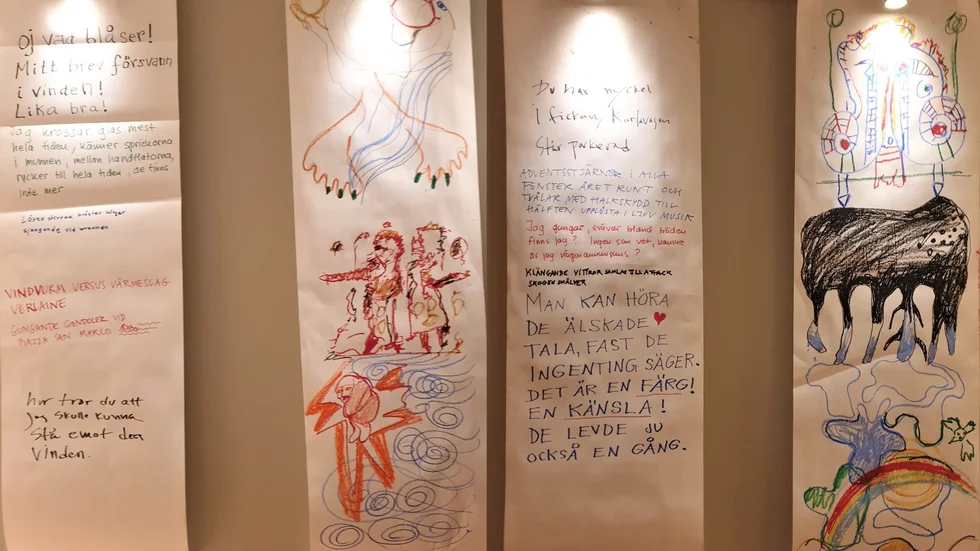 Oj vad blåser!
Mitt brev försvann
i vinden!
Lika bra!
Jag krossar glas mest
hela tiden, känner sprickorna
i munnen, mellan handflatorna,
rycker till hela tiden, de finns
inte mer
sjungande vid
VINDVURM VERSUS VÄRMESLAG
VERLAINE
GUNGANDE GONDOLER VID
PIAZZA SAN MARCO
hur tror du att
jag skulle kunna
stå emot den
vinden.
Du har mycket
i fickan, Karlavagen
står parkerad
ADVENTSSTJÄRNOR I ALLA
FÖNSTER ÅRET RUNT OCH
TVÅLAR MED HALKSKYDD TILL
HÄLFTEN UPPLÖSTA I LJUV MUSIK
Jag gungar, svävar bland träden
finns jag? Ingen som vet, kanske
är jag
KLÄNGANDE VITTROR SAMLAS TILL ATTACK
SKOGEN SMÄLTER
MAN KAN HÖRA
DE ÄLSKADE
TALA, FAST DE
INGENTING SÄGER.
DET ÄR EN FÄRG!
EN KÄNSLA!
DE LEVDE JU
OCKSÅ EN GÅNG.